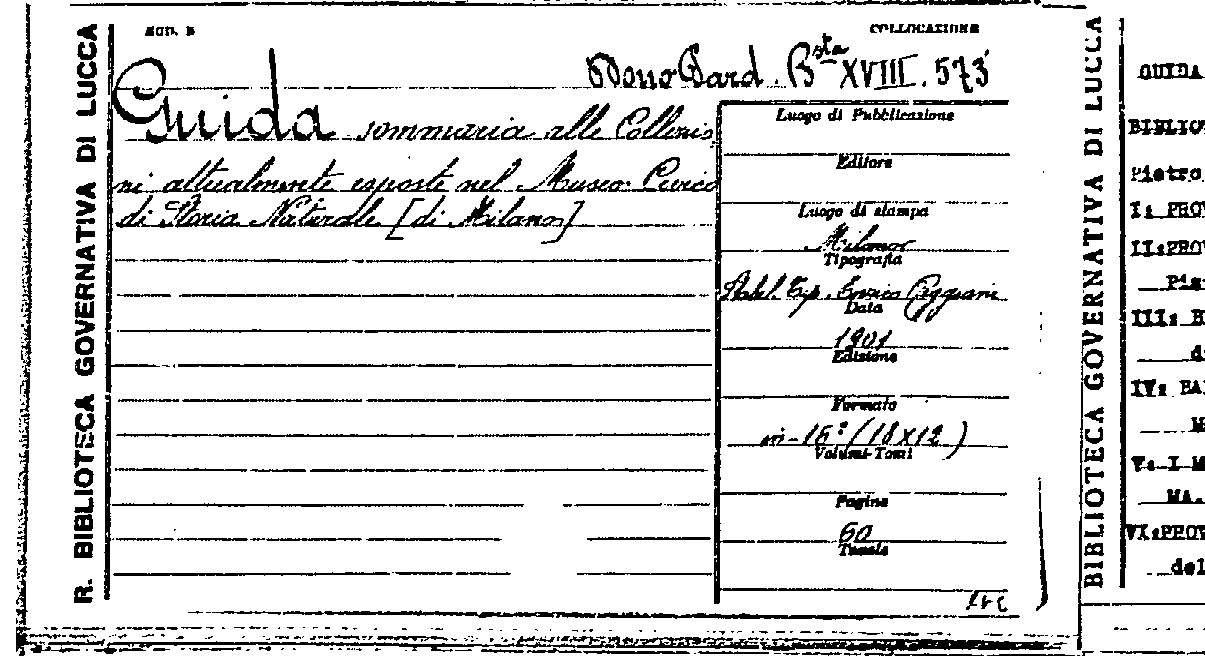 R. BIBLIOTECA GOVERNATIVA DI LUCCA
MOD. B
COLLOCAZIONE
Dono Bard. Bsta XVIII. 573
Guida sommaria alle Collezio
ni attualmente esposte nel Museo Civico
di Storia Naturale [di Milano]
Luogo di Pubblicazione
Editore
Luogo di stampa
Milano
Tipografia
Stabil. Tip. Enrico
Data
1901
Edizione
Formato
in-16º (18x12)
Volumi-Tomi
Pagine
60
Tavole
BIBLIOTECA GOVERNATIVA DI LUCCA
GUIDA
BIBLIO
Pietro
I: PROV
II:PROV
Pis
III: B
d
IV: BA
M
V: I M
MA.
VI:PROV
del